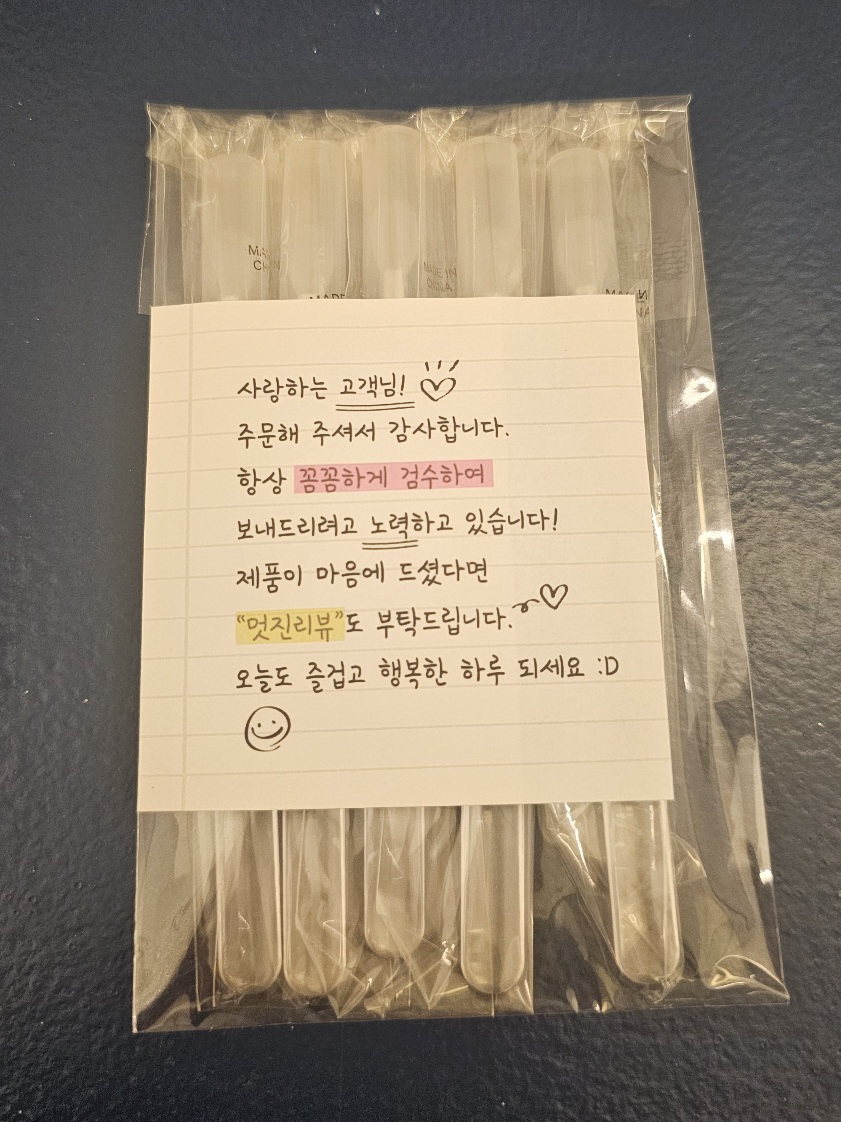 MADE IN
CHINA
사랑하는 고객님!
주문해 주셔서 감사합니다.
항상 꼼꼼하게 검수하여
보내드리려고 노력하고 있습니다!
제품이 마음에 드셨다면
“멋진리뷰”도 부탁드립니다.
오늘도 즐겁고 행복한 하루 되세요 :D